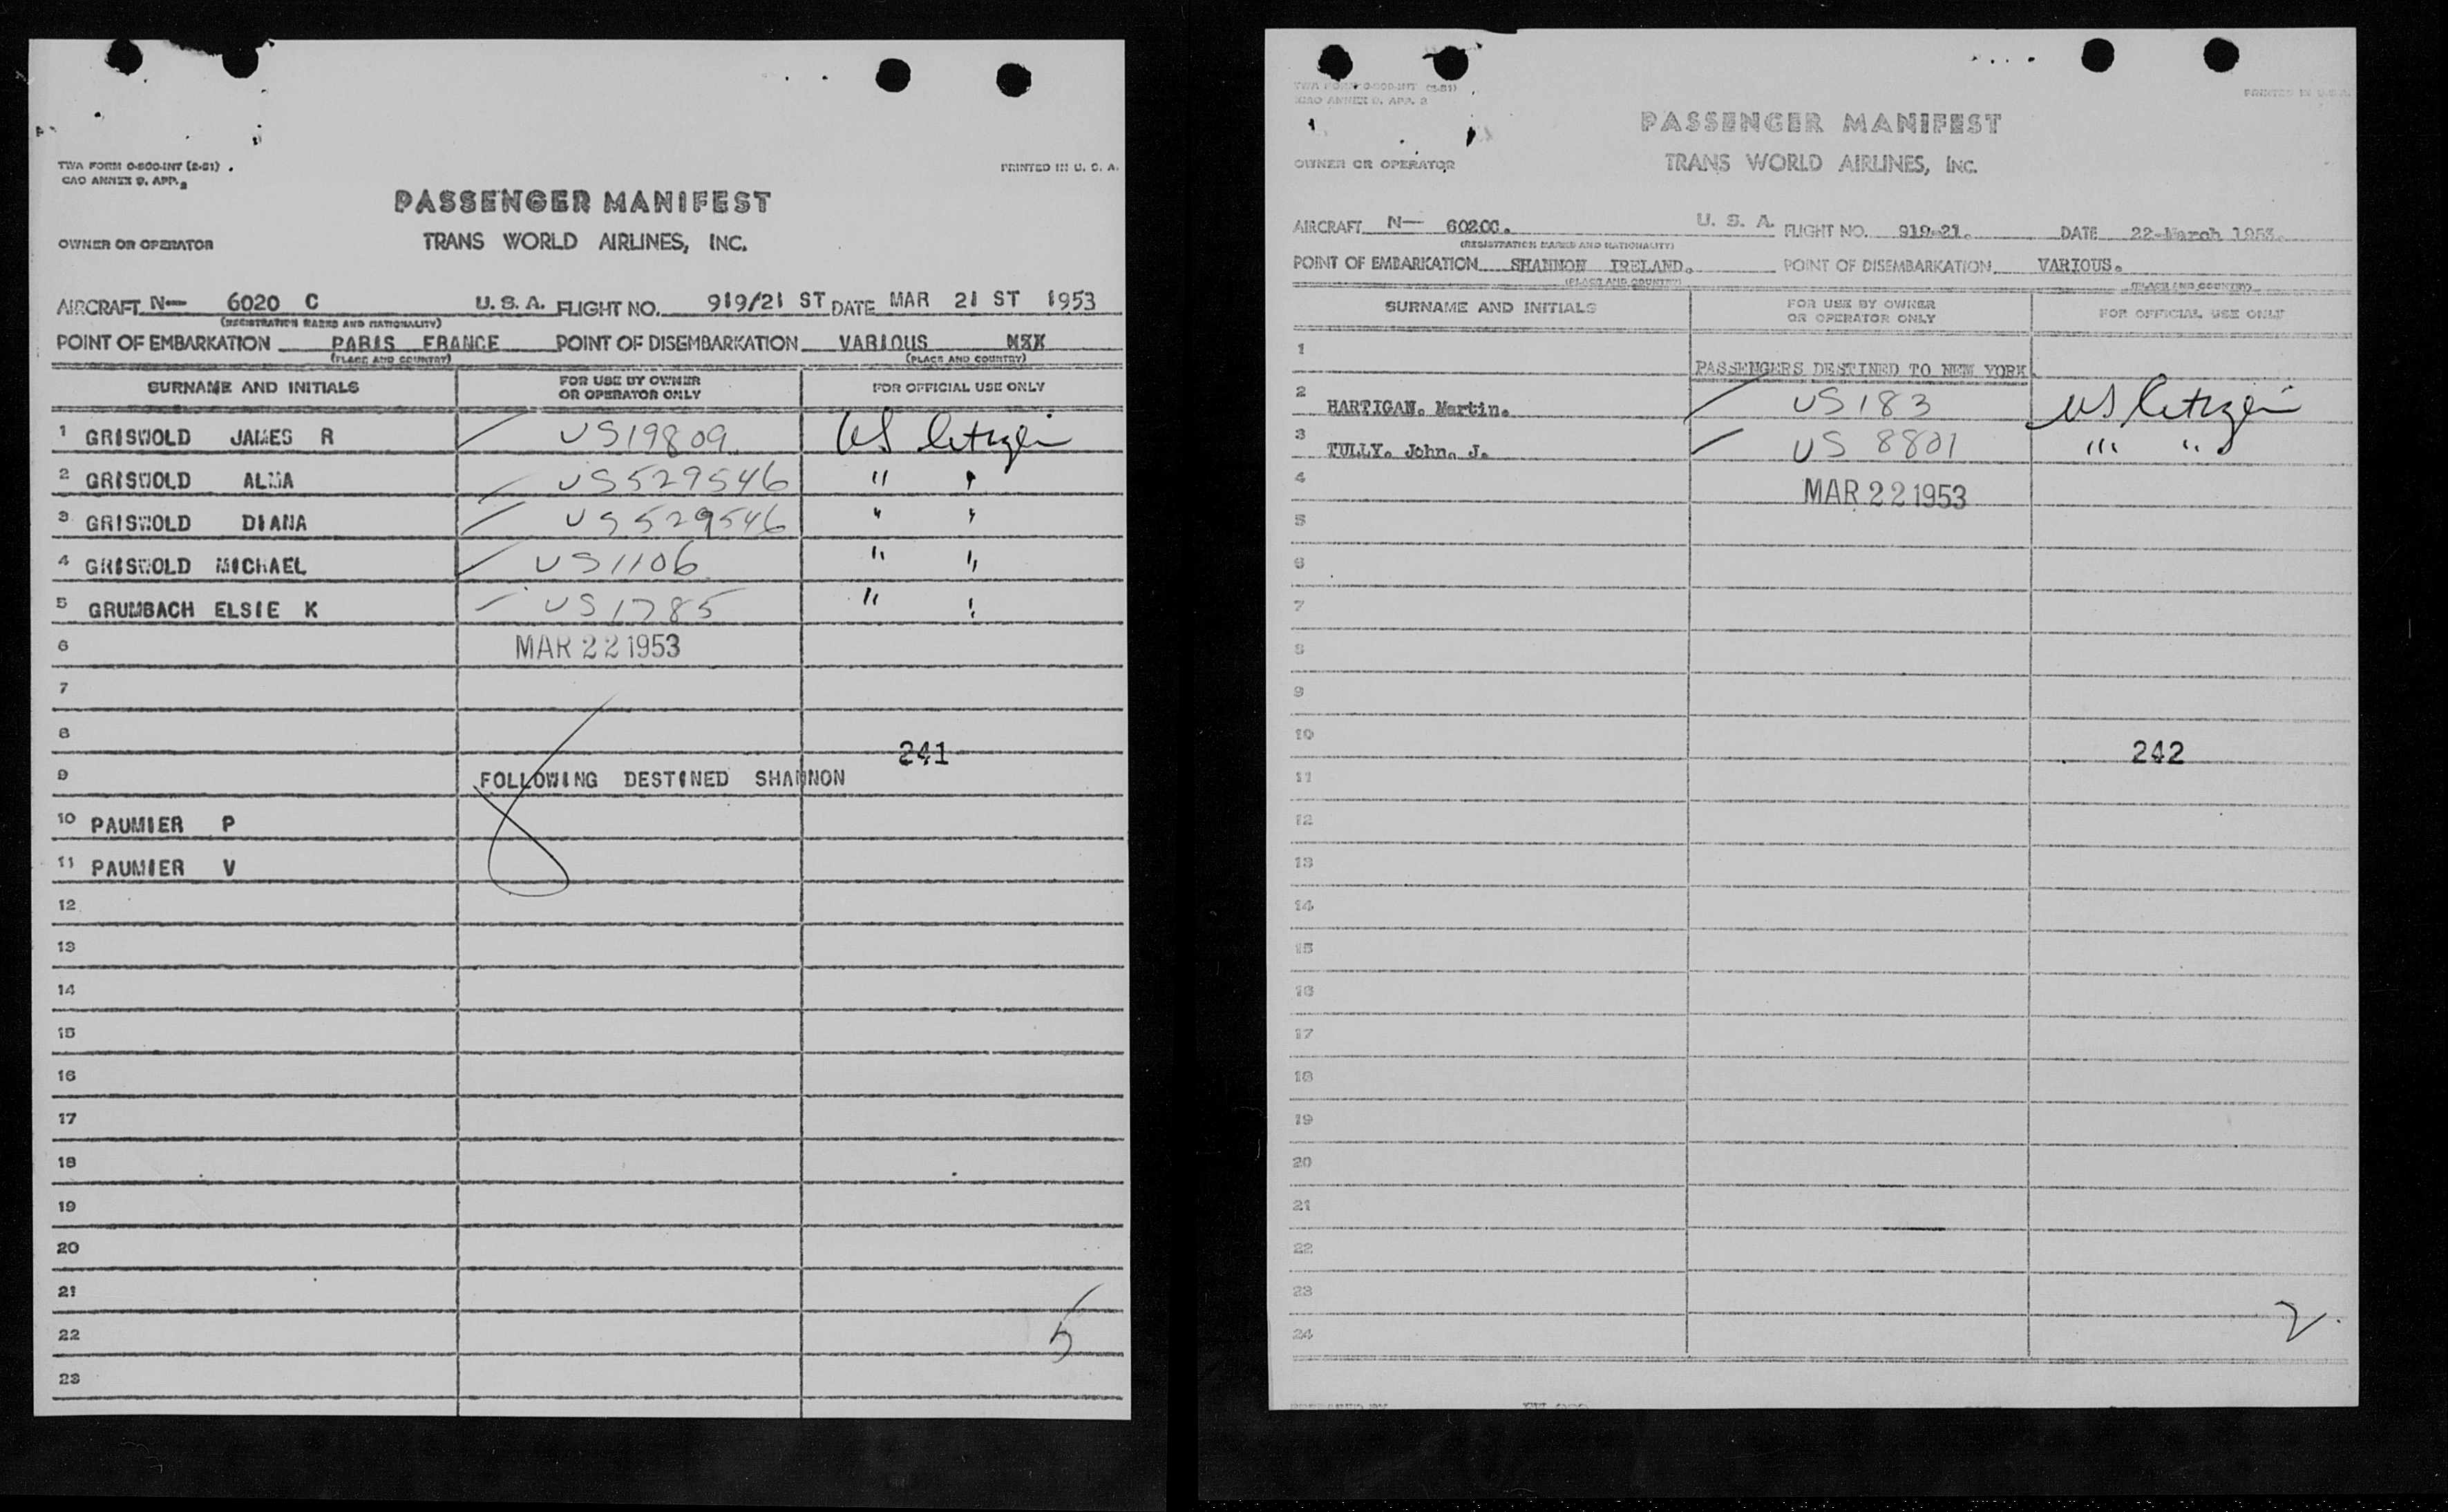 TWA FORM O-800-INT (2-51)
CAO ANNEX 9. APP. 2
PRINTED IN U. S. A.
PASSENGER MANIFEST
OWNER OR OPERATOR TRANS WORLD AIRLINES, INC.
AIRCRAFT N— 6020 C U. S. A. FLIGHT NO. 919/21 ST DATE MAR 21 ST 1953
(REGISTRATION MARKS AND NATIONALITY)
POINT OF EMBARKATION PARIS FRANCE POINT OF DISEMBARKATION VARIOUS
(PLACE AND COUNTRY) (PLACE AND COUNTRY)
SURNAME AND INITIALS FOR USE BY OWNER OR OPERATOR ONLY FOR OFFICIAL USE ONLY
1 GRISWOLD JAMES R US19809 US Citizen
2 GRISWOLD ALMA US529546 " "
3 GRISWOLD DIANA US529546 " "
4 GRISWOLD MICHAEL US1106 " "
5 GRUMBACH ELSIE K US1785 " "
6 MAR 22 1953
7
8 241
9 FOLLOWING DESTINED SHANNON
10 PAUMIER P
11 PAUMIER V
12
13
14
15
16
17
18
19
20
21
22 5
23
TWA FORM O-800-INT (2-51)
ICAO ANNEX 9. APP. 2
PRINTED IN U.S.A.
PASSENGER MANIFEST
OWNER OR OPERATOR TRANS WORLD AIRLINES, INC.
AIRCRAFT N— 6020C. U. S. A. FLIGHT NO. 919-21. DATE 22-March 1953.
(REGISTRATION MARKS AND NATIONALITY)
POINT OF EMBARKATION SHANNON IRELAND. POINT OF DISEMBARKATION VARIOUS.
(PLACE AND COUNTRY) (PLACE AND COUNTRY)
SURNAME AND INITIALS FOR USE BY OWNER OR OPERATOR ONLY FOR OFFICIAL USE ONLY
1 PASSENGERS DESTINED TO NEW YORK.
2 HARTIGAN. Martin. US183 US Citizen
3 TULLY. John. J. US 8801 " "
4 MAR 22 1953
5
6
7
8
9
10 242
11
12
13
14
15
16
17
18
19
20
21
22
23
24 2